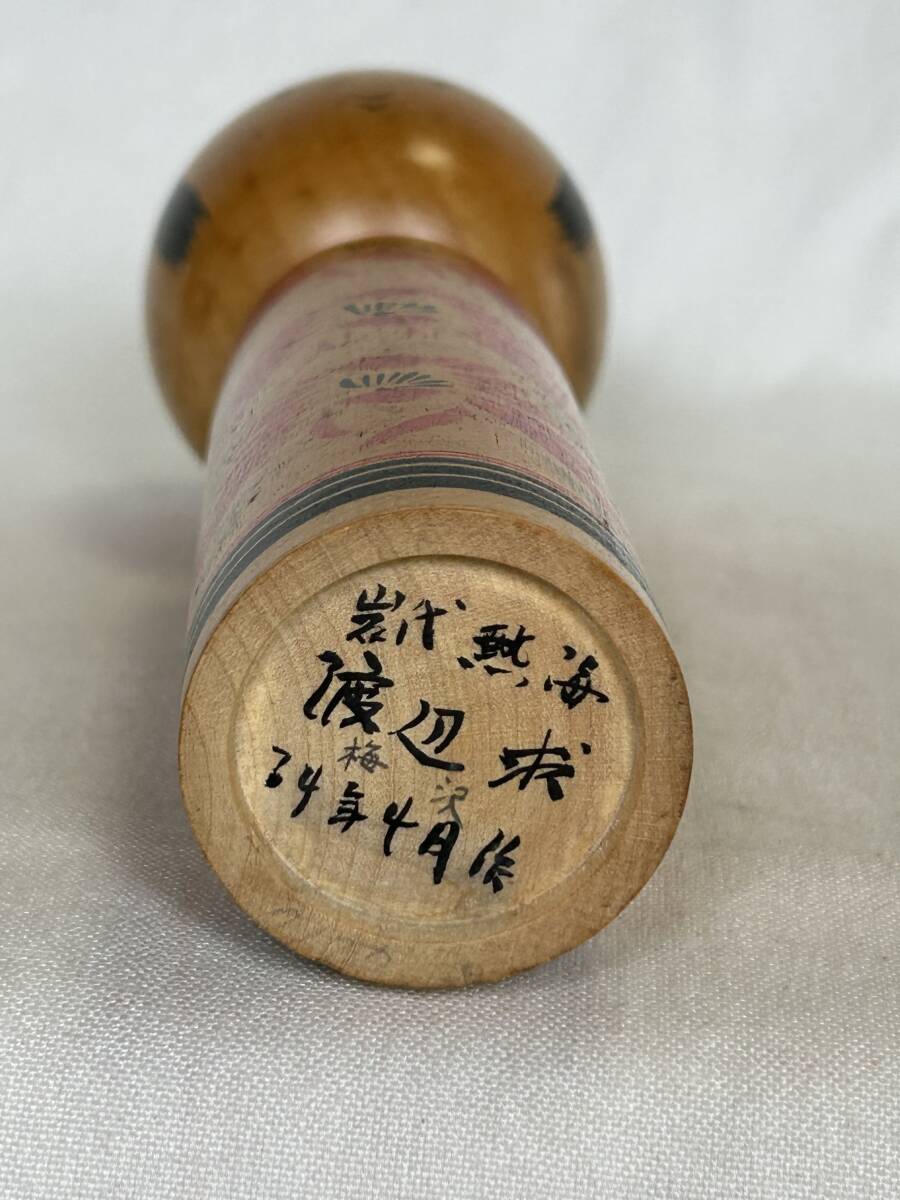 岩代熱海
渡辺求
34年4月作
梅沢